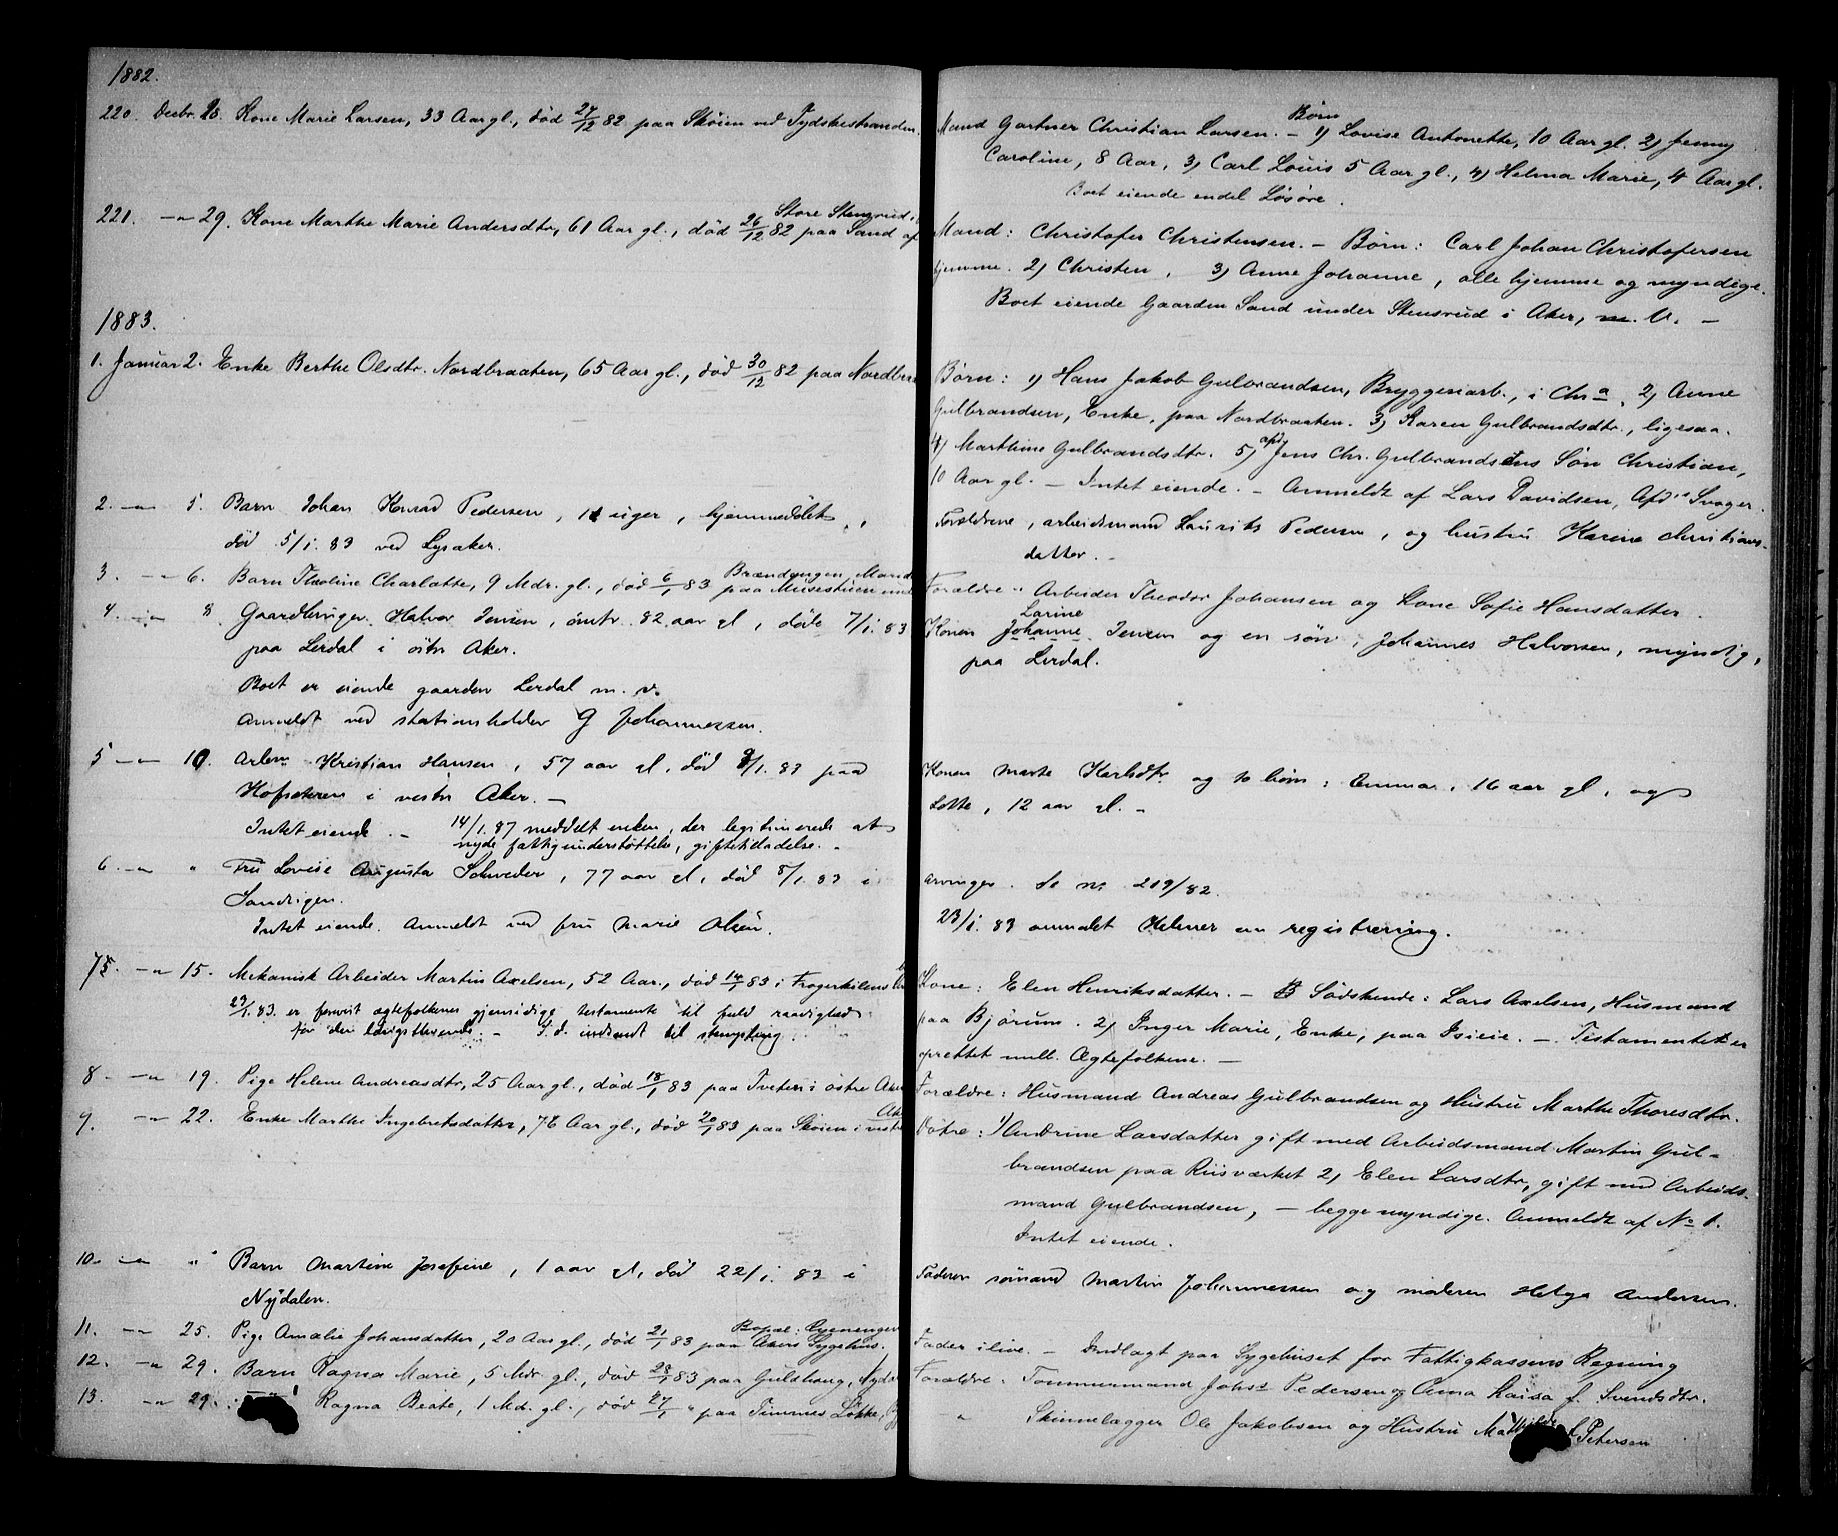 1882.
220. Decbr. 28. Kone Marie Larsen, 33 Aar gl., död 27/12 82 paa Sköien ved Tydskestranden.
221. -"- 29. Kone Marthe Marie Andersdtr, 61 Aar gl., död 26/12 82 paa Sand af
Store Stensrud i
1883.
1. Januar 2. Enke Berthe Olsdtr. Nordbraaten, 65 Aar gl., död 30/12 82 paa Nordbraa
2. -"- 5. Barn Johan Konrad Pedersen, 11 uger, hjemmedöbt,
död 5/1. 83 ved Lysaker.
3. -"- 6. Barn Tholine Charlotte, 9 Mdr. gl., död 6/1 83 paa Musestuen und
Brændengen, Mand
4. -"- 8 Gaardbruger Halvor Jensen, omtr. 82 aar gl, döde 7/1. 83
paa Lerdal i östr Aker.
Boet er eiende gaarden Lerdal m. v.
Anmeldt ved stationsholder G Johannessen.
5 -"- 10. Arbm. Kristian Hansen, 57 aar gl, död 9/1. 83 paa
Hofseteren i vestr Aker. -
Intet eiende. - 14/1. 87 meddelt enken, der legitimerede at
nyde fattigunderstöttelse, giftetilladelse. -
6 -"- " Fru Lovise Augusta Schweder, 77 aar gl, död 8/1. 83 i
Sandvigen.
Intet eiende. Anmeldt ved fru Marie Olsen.
7. -"- 15. Mekanisk Arbeider Martin Axelsen, 52 Aar, död 14/1 83 i Frognerkilens
29/1. 83. er forevist ægtefolkenes gjensidige testamente til fuld raadighed
for den længstlevende. - S. d. indsendt til stempling.
8 -"- 19. Pige Helene Andreasdtr, 25 Aar gl., död 18/1 83 paa Tveten i östre Aker
9. -"- 22. Enke Marthe Ingebretsdatter, 76 Aar gl., död 20/1 83 paa Sköien i vestre
Ake
10. -"- " Barn Martine Josefine, 1 aar gl, död 22/1. 83 i
Nydalen.
11. -"- 25. Pige Amalie Johansdatter, 20 Aar gl., död 21/1 83 paa Akers Sygehus.
Bopæl:
12. -"- 29. Barn Ragna Marie, 5 Mdr. gl., död 28/1 83 paa Gulshaug, Nyd
13. -"- 29. Ragna Beate, 1 Md. gl., död 27/1 " paa Timmes Lökke,
Mand Gartner Christian Larsen. - Börn 1) Lovise Antonette, 10 Aar gl. 2) Jenny
Caroline, 8 Aar, 3) Carl Louis 5 Aar gl., 4) Helma Marie, 4 Aar gl.
Boet eiende endel Lösöre.
Mand: Christofer Christensen. - Börn: Carl Johan Christofersen
hjemme. 2) Christen, 3) Anne Johanne, alle hjemme og myndige.
Boet eiende Gaarden Sand under Stensrud i Aker, m. v. -
Börn: 1) Hans Jakob Gulbrandsen, Bryggeriarb., i Chra, 2) Anne
Gulbrandsen, Enke, paa Nordbraaten. 3) Karen Gulbrandsdtr., ligesaa.
4) Marthine Gulbrandsdtr. 5) afdg Jens Chr. Gulbrandsens Sön Christian,
10 Aar gl. - Intet eiende. - Anmeldt af Lars Davidsen, Afd.s Svoger.
Forældrene, arbeidsmand Laurits Pedersen, og hustru Karine Christians-
datter. -
Forældre: Arbeider Theodor Johansen og Kone Sofie Hansdatter.
Konen Johanne Larine Jensen og en sön, Johannes Halvorsen, myndig,
paa Lerdal.
Konen Marte Karlsdtr og to börn: Emma, 16 aar gl, og
Lotte, 12 aar gl. -
Arvinger. Se no 219/82.
23/1. 83 anmodet Helmer om registrering.
Kone: Elen Henriksdatter. - Södskende: Lars Axelsen, Husmand
paa Björum. 2) Inger Marie, Enke, paa Isieie. - Testamentet er
oprettet mell. Ægtefolkene. -
Forældre: Husmand Andreas Gulbrandsen og Hustru Marthe Thoresdtr.
Dötre: 1) Andrine Larsdatter gift med Arbeidsmand Martin Gul-
brandsen paa Riisværket 2) Elen Larsdtr, gift med Arbeids-
mand Gulbrandsen, - begge myndige. Anmeldt af No 1.
Intet eiende.
Faderen sömand Martin Johannessen og moderen Helga Andersen.
Fader ilive. - Indlagt paa Sygehuset for Fattigkassens Regning
Forældre. Tömmermand Johs Pedersen og Anna Kaisa f. Svendsdtr.
" Skinnelægger Ole Jakobsen og Hustru Mathilde f Petersen